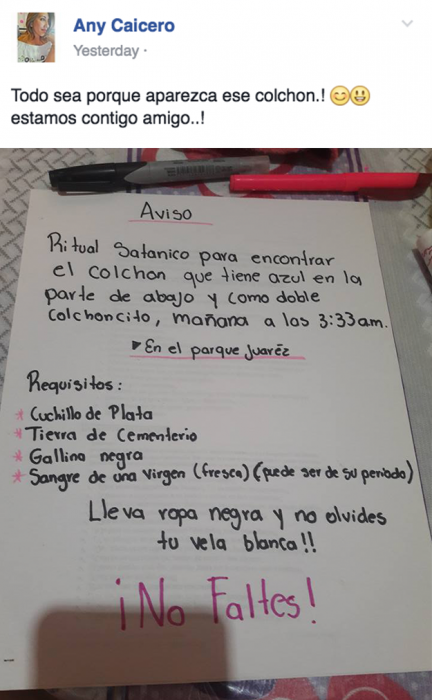 Any Caicero
Yesterday ·
Todo sea porque aparezca ese colchon.! 😊😃
estamos contigo amigo..!
Aviso
Ritual Satanico para encontrar
el colchon que tiene azul en la
parte de abajo y como doble
colchoncito, mañana a las 3:33am.
▸En el parque Juaréz
Requisitos:
* Cuchillo de Plata
* Tierra de Cementerio
* Gallina negra
* Sangre de una Virgen (fresca) (puede ser de su periodo)
Lleva ropa negra y no olvides
tu vela blanca!!
¡No Faltes!